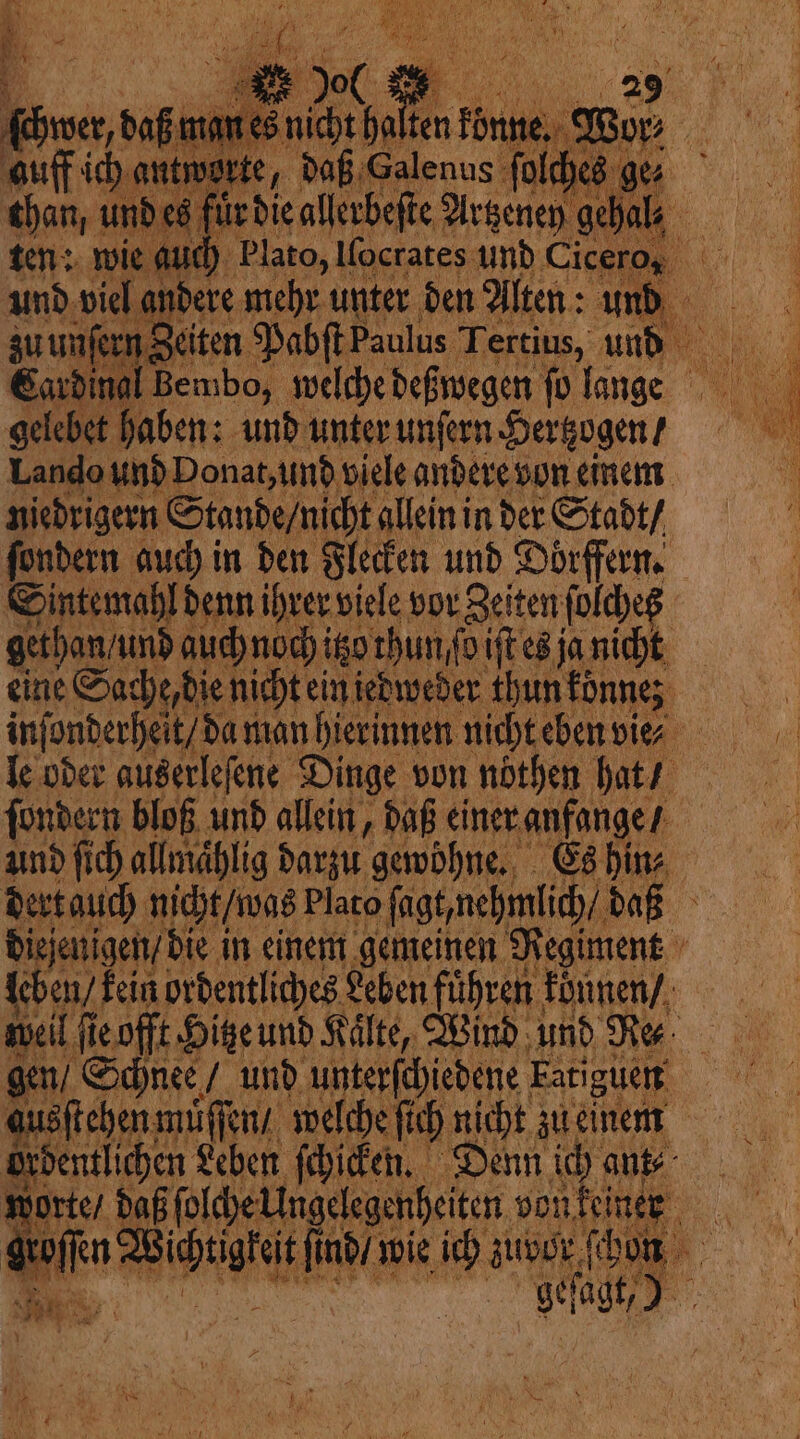 )o( 29
ſchwer, daß man es nicht halten koͤnne. Wor⸗
auff ich antworte, daß Galenus ſolches ge⸗
than, und es fuͤr die allerbeſte Artzeney gehal⸗
ten: wie auch Plato, Iſocrates und Cicero,
und viel andere mehr unter den Alten: und
zu unſern Zeiten Pabſt Paulus Tertius, und
Cardinal Bembo, welche deßwegen ſo lange
gelebet haben: und unter unſern Hertzogen/
Lando und Donat, und viele andere von einem
niedrigern Stande/nicht allein in der Stadt/
ſondern auch in den Flecken und Doͤrffern.
Sintemahl denn ihrer viele vor Zeiten ſolches
gethan/und auch noch itzo thun, ſo iſt es ja nicht
eine Sache, die nicht ein iedweder thun koͤnne;
inſonderheit/ da man hierinnen nicht eben vie⸗
le oder auserleſene Dinge von noͤthen hat/
ſondern bloß und allein, daß einer anfange/
und ſich allmaͤhlig darzu gewoͤhne. Es hin⸗
dert auch nicht/was Plato ſagt, nehmlich/ daß
diejenigen/ die in einem gemeinen Regiment
leben/ kein ordentliches Leben fuͤhren koͤnnen/
weil ſie offt Hitze und Kaͤlte, Wind und Re⸗
gen/ Schnee/ und unterſchiedene Fatiguen
ausſtehen muͤſſen/ welche ſich nicht zu einem
ordentlichen Leben ſchicken. Denn ich ant⸗
worte/ daß ſolche Ungelegenheiten von keiner
groſſen Wichtigkeit ſind/ wie ich zuvor ſchon
geſagt,)